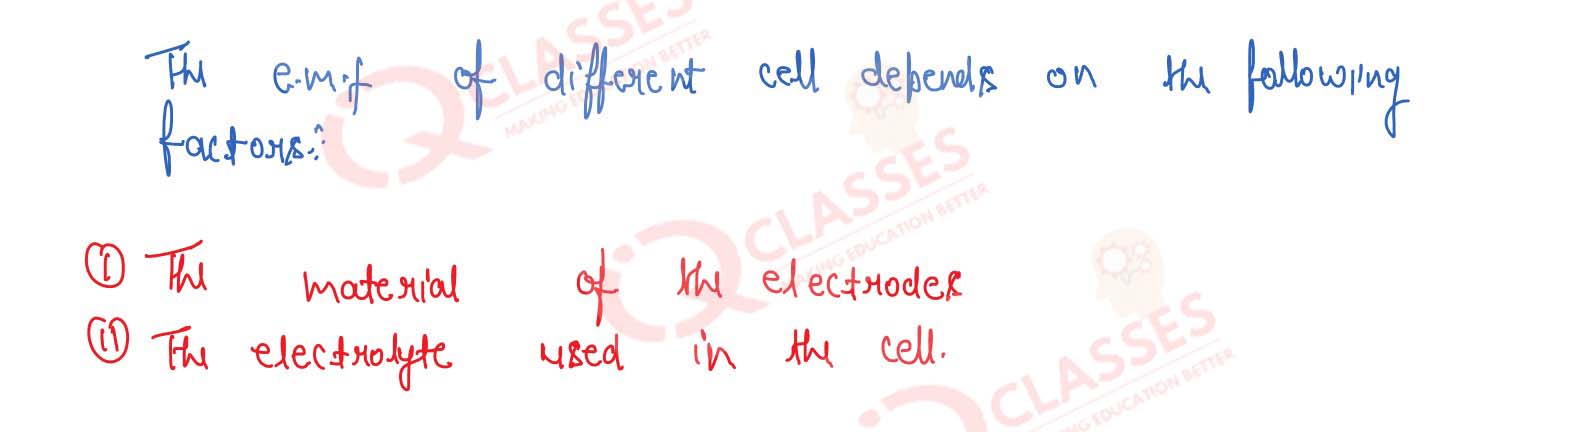 The e.m.f of different cell depends on the following
factors:
(i) The material of the electrodes
(ii) The electrolyte used in the cell.
CLASSES
MAKING EDUCATION BETTER
CLASSES
MAKING EDUCATION BETTER
CLASSES
MAKING EDUCATION BETTER